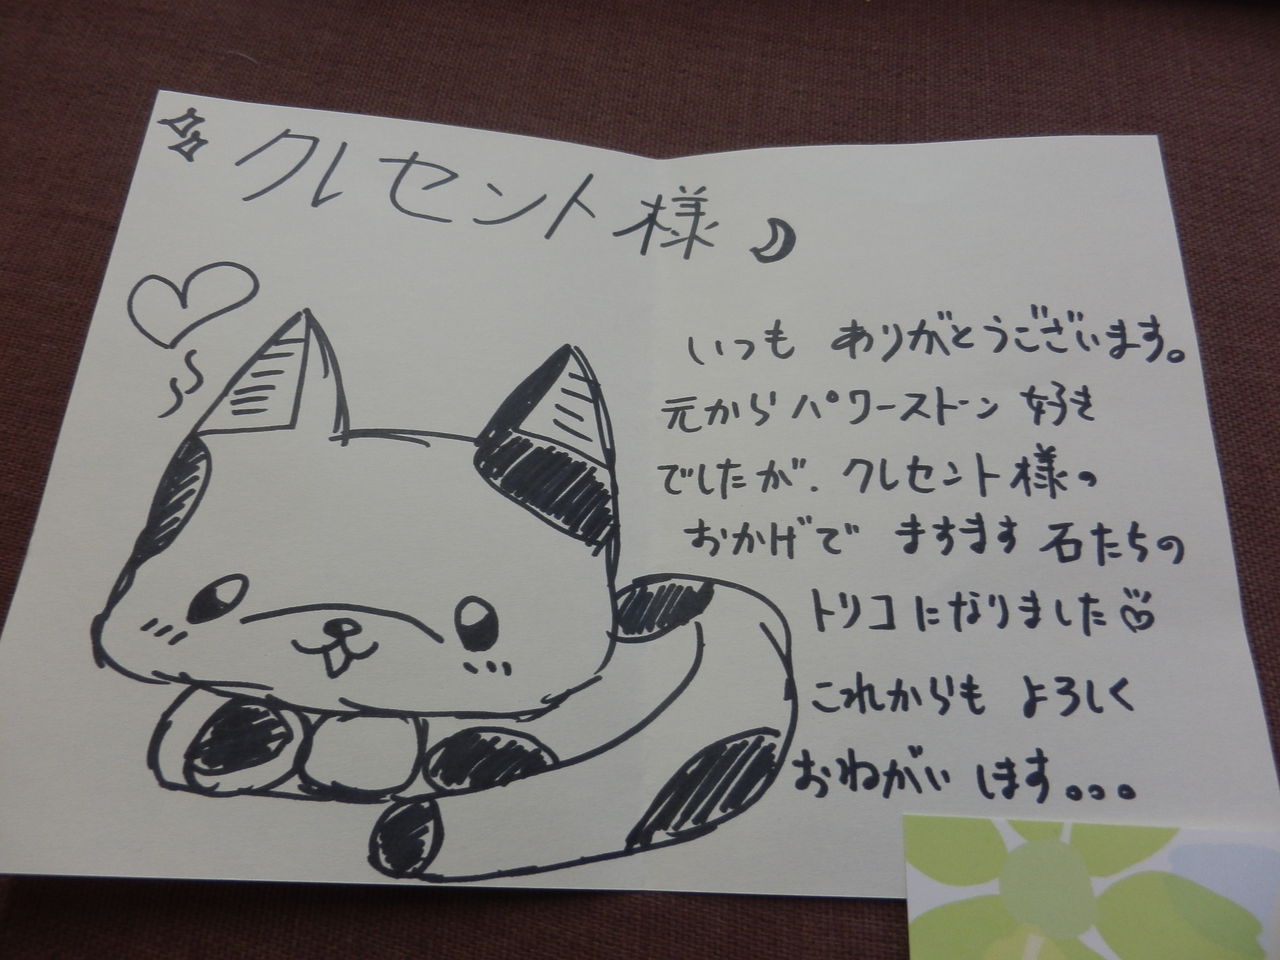 クレセント様
いつも ありがとうございます。
元からパワーストーン 好き
でしたが、クレセント様の
おかげで ますます 石たちの
トリコになりました
これからも よろしく
おねがい します。。。